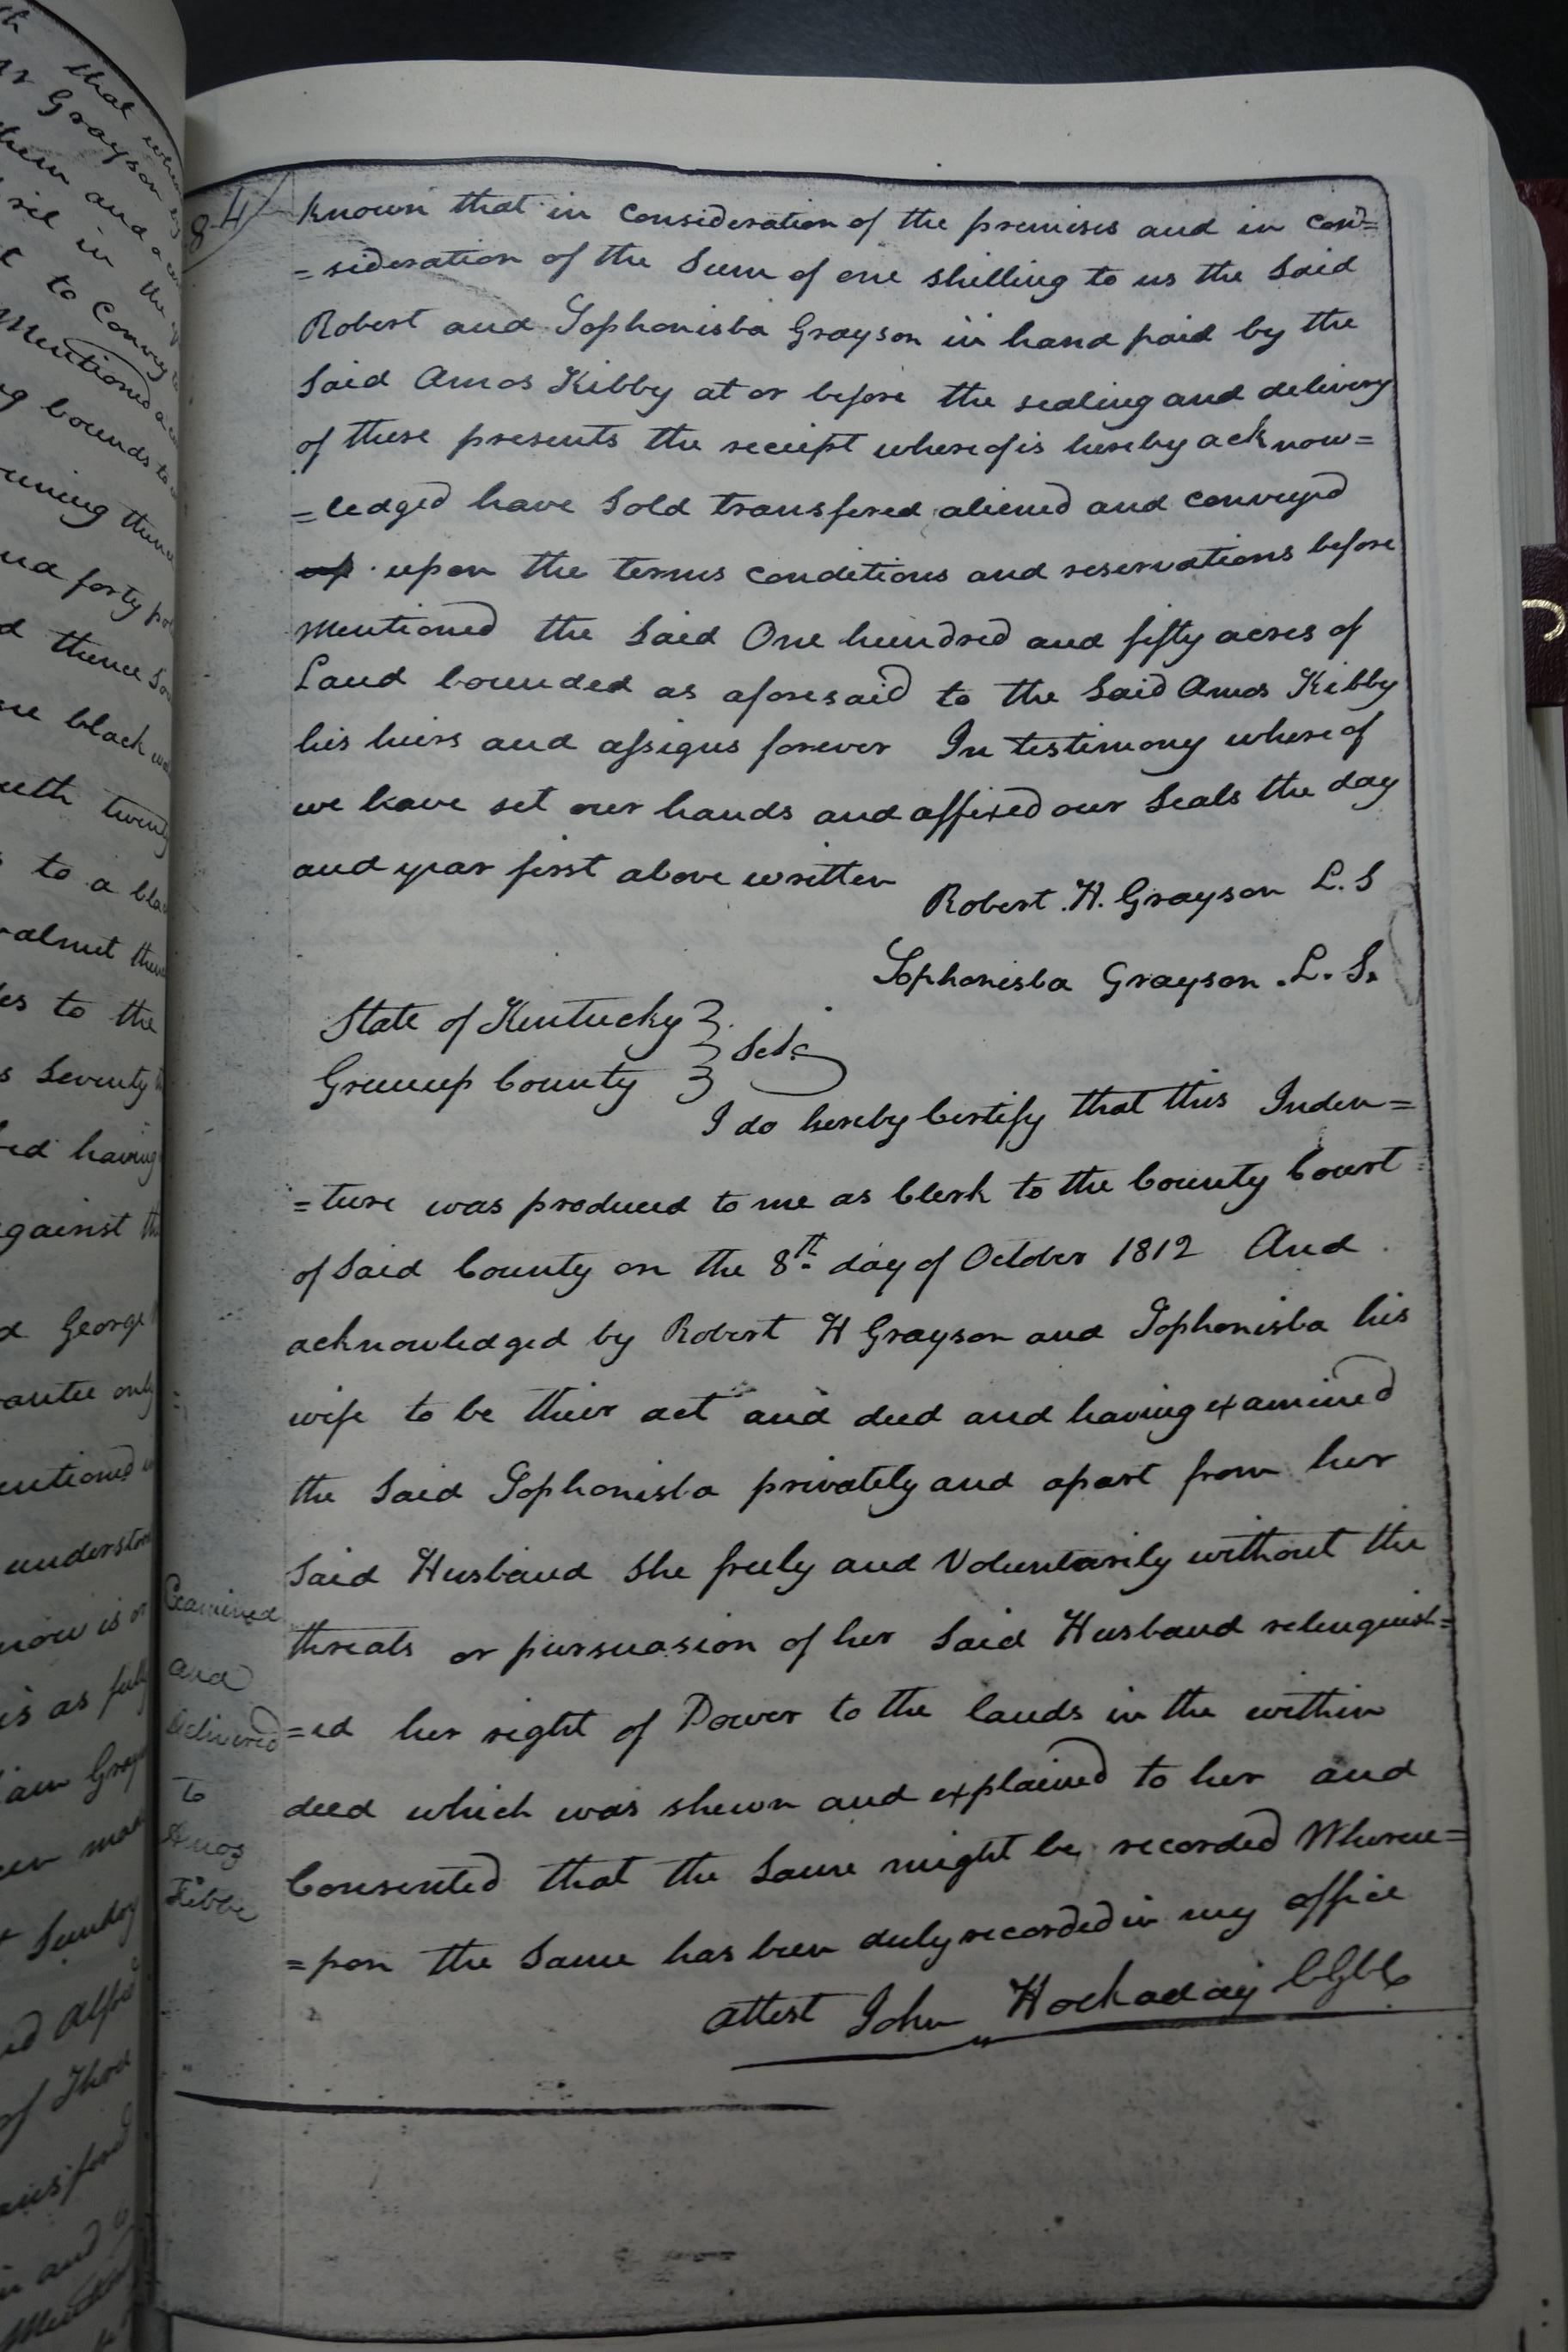 that when
Grayson
them and
in the
to Convey
Mentioned
bounds to
thence
forty
thence
black
twenty
to a
walnut
to the
Seventy
having
against
George
only
understood
now is
is as
am
Sunday
of
and
84
Known that in Consideration of the premises and in Con=
=sideration of the Sum of one shilling to us the Said
Robert and Sophonisba Grayson in hand paid by the
Said Amos Kibby at or before the sealing and delivery
of these presents the receipt whereof is hereby acknow=
=ledged have Sold transfered aliened and conveyed
up upon the terms conditions and reservations before
Mentioned the Said One hundred and fifty acres of
Land bounded as aforesaid to the Said Amos Kibby
his heirs and assigns forever In testimony whereof
we have set our hands and affixed our Seals the day
and year first above written
Robert .H. Grayson L.S
Sophonisba Grayson .L.S.
State of Kentucky }
Greenup County } Sct.
I do hereby Certify that this Inden=
=ture was produced to me as Clerk to the County Court
of Said County on the 8th day of October 1812 And
acknowledged by Robert H Grayson and Sophonisba his
wife to be their act and deed and having examined
the Said Sophonisba privately and apart from her
Said Husband She freely and Voluntarily without the
threats or pursuasion of her Said Husband relinquish=
=ed her right of Dower to the lands in the within
deed which was shewn and explained to her and
Consented that the Same might be recorded Whereu=
=pon the Same has been duly recorded in my office
attest John Hockaday CGCC
Examined
and
delivered
to
Amos
Kibbe